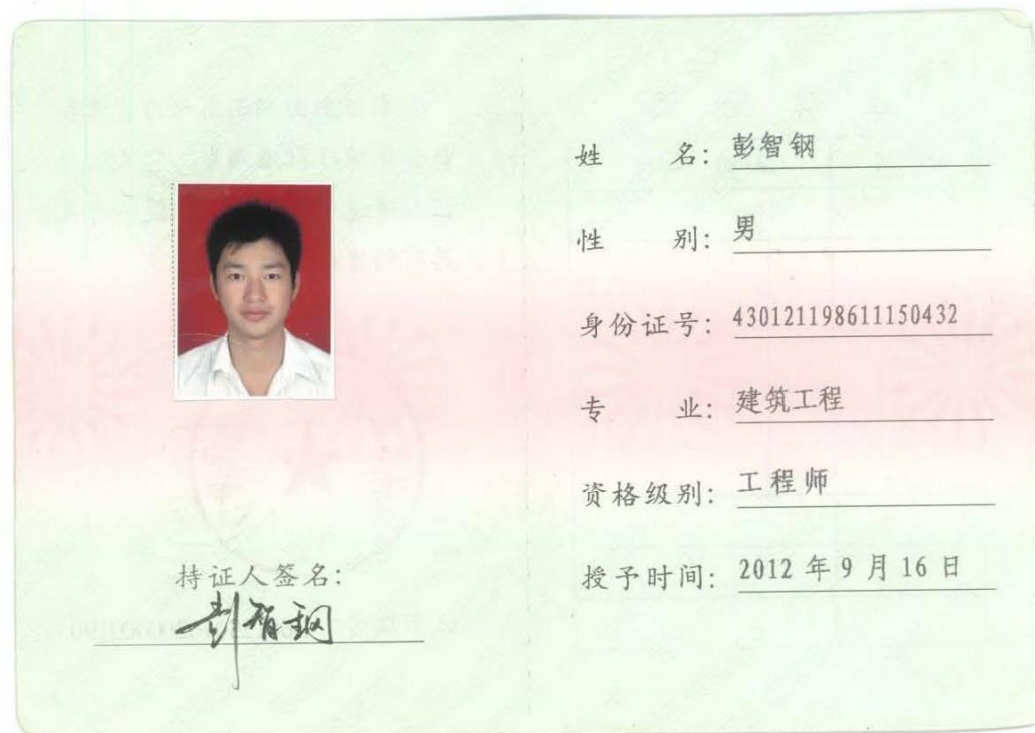 持证人签名:
彭智钢
姓 名: 彭智钢
性 别: 男
身份证号: 430121198611150432
专 业: 建筑工程
资格级别: 工程师
授予时间: 2012 年 9 月 16 日